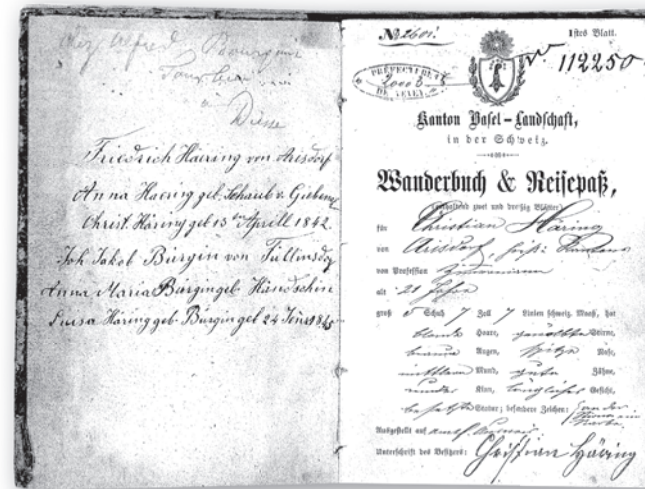 chez Alfred Bourgin
Diesse
Friedrich Häring von Arisdorf
Anna Haering geb. Schaub v. Giebena
Christ. Häring geb 13ten Aprill 1842.
Joh Jakob Bürgin von Füllinsdorf
Anna Maria Bürgin geb. Handschin
Luisa Häring geb. Bürgin geb 24 1845
No 2601.
1stes Blatt.
No 112250
PRÉFECTURE
DE VEVEY
Kanton Basel-Landschaft,
in der Schweiz.
Wanderbuch & Reisepaß,
(enthaltend zwei und dreißig Blätter)
für Christian Häring
von Arisdorf
von Profession Zimmermann
alt 21 Jahre
groß 5 Schuh 7 Zoll 7 Linien schweiz. Maaß, hat
blonde Haare, gewölbte Stirne,
braune Augen, spitze Nase,
mittlern Mund, gute Zähne,
rundes Kinn, längliches Gesicht,
besetzte Statur; besondere Zeichen: an der
Narbe.
Ausgestellt auf
Unterschrift des Besitzers: Christian Häring